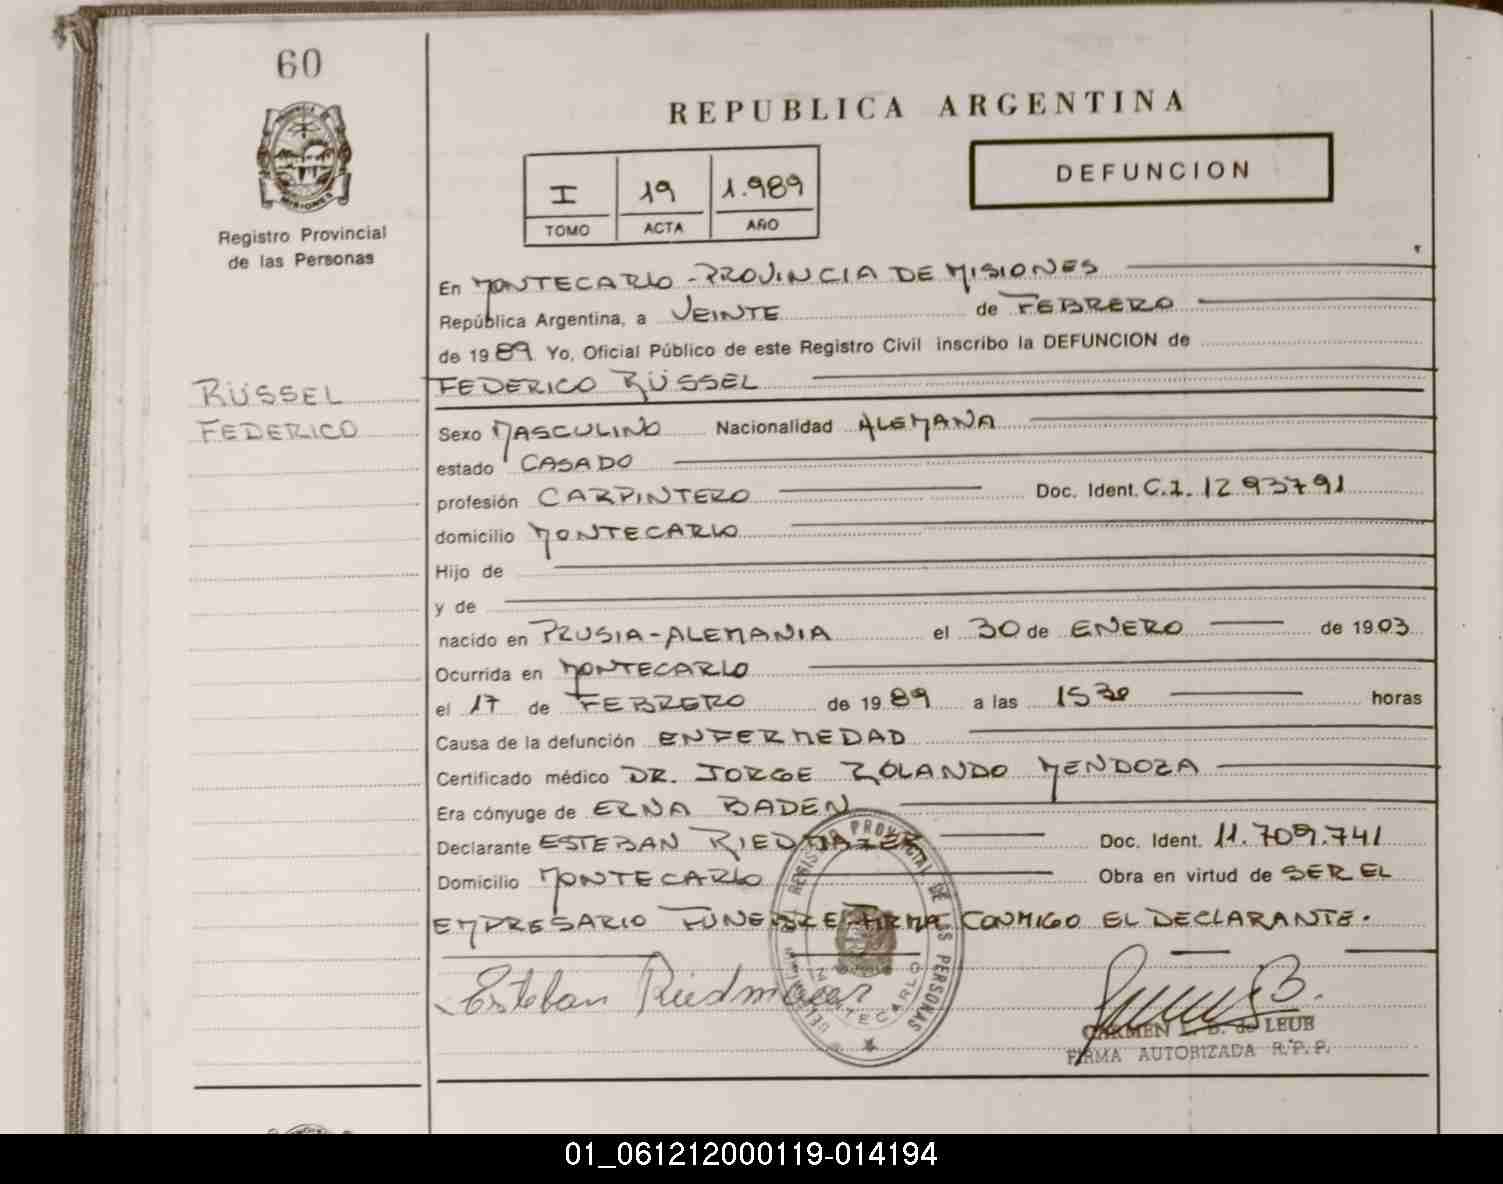 60
REPUBLICA ARGENTINA
DEFUNCION
I 19 1.989
TOMO ACTA AÑO
MISIONES
Registro Provincial
de las Personas
En MONTECARLO - PROVINCIA DE MISIONES
República Argentina, a VEINTE de FEBRERO
de 1989 Yo, Oficial Público de este Registro Civil inscribo la DEFUNCION de
RÜSSEL
FEDERICO
FEDERICO RÜSSEL
Sexo MASCULINO Nacionalidad ALEMANA
estado CASADO
profesión CARPINTERO Doc. Ident. C.I. 1293791
domicilio MONTECARLO
Hijo de
y de
nacido en PRUSIA-ALEMANIA el 30 de ENERO de 1903
Ocurrida en MONTECARLO
el 17 de FEBRERO de 1989 a las 15 30 horas
Causa de la defunción ENFERMEDAD
Certificado médico DR. JORGE ROLANDO MENDOZA
Era cónyuge de ERNA BADEN
Declarante ESTEBAN Doc. Ident. 11.709.741
Domicilio MONTECARLO Obra en virtud de SER EL
EMPRESARIO FUNEBRE FIRMA CONMIGO EL DECLARANTE.
REGISTRO PROVINCIAL DE LAS PERSONAS
MONTECARLO
Esteban Riedmaier
CARMEN de LEUB
FIRMA AUTORIZADA R.P.P.
01_061212000119-014194